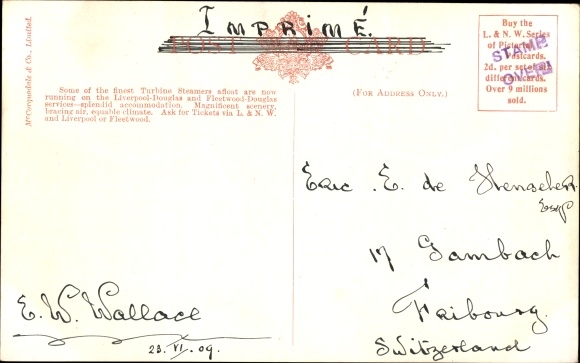 IMPRIMÉ
POST CARD
McCorquodale & Co., Limited.
Some of the finest Turbine Steamers afloat are now
running on the Liverpool-Douglas and Fleetwood-Douglas
services—splendid accommodation. Magnificent scenery,
bracing air, equable climate. Ask for Tickets via L. & N. W.
and Liverpool or Fleetwood.
(FOR ADDRESS ONLY.)
Buy the
L. & N. W. Series
of Pictorial
Postcards.
2d. per set of six
different cards.
Over 9 millions
sold.
STAMP
OVER
Eric . E. de
Esqr
17 Gambach
Fribourg.
Switzerland
E. W. Wallace
23. VI. 09.